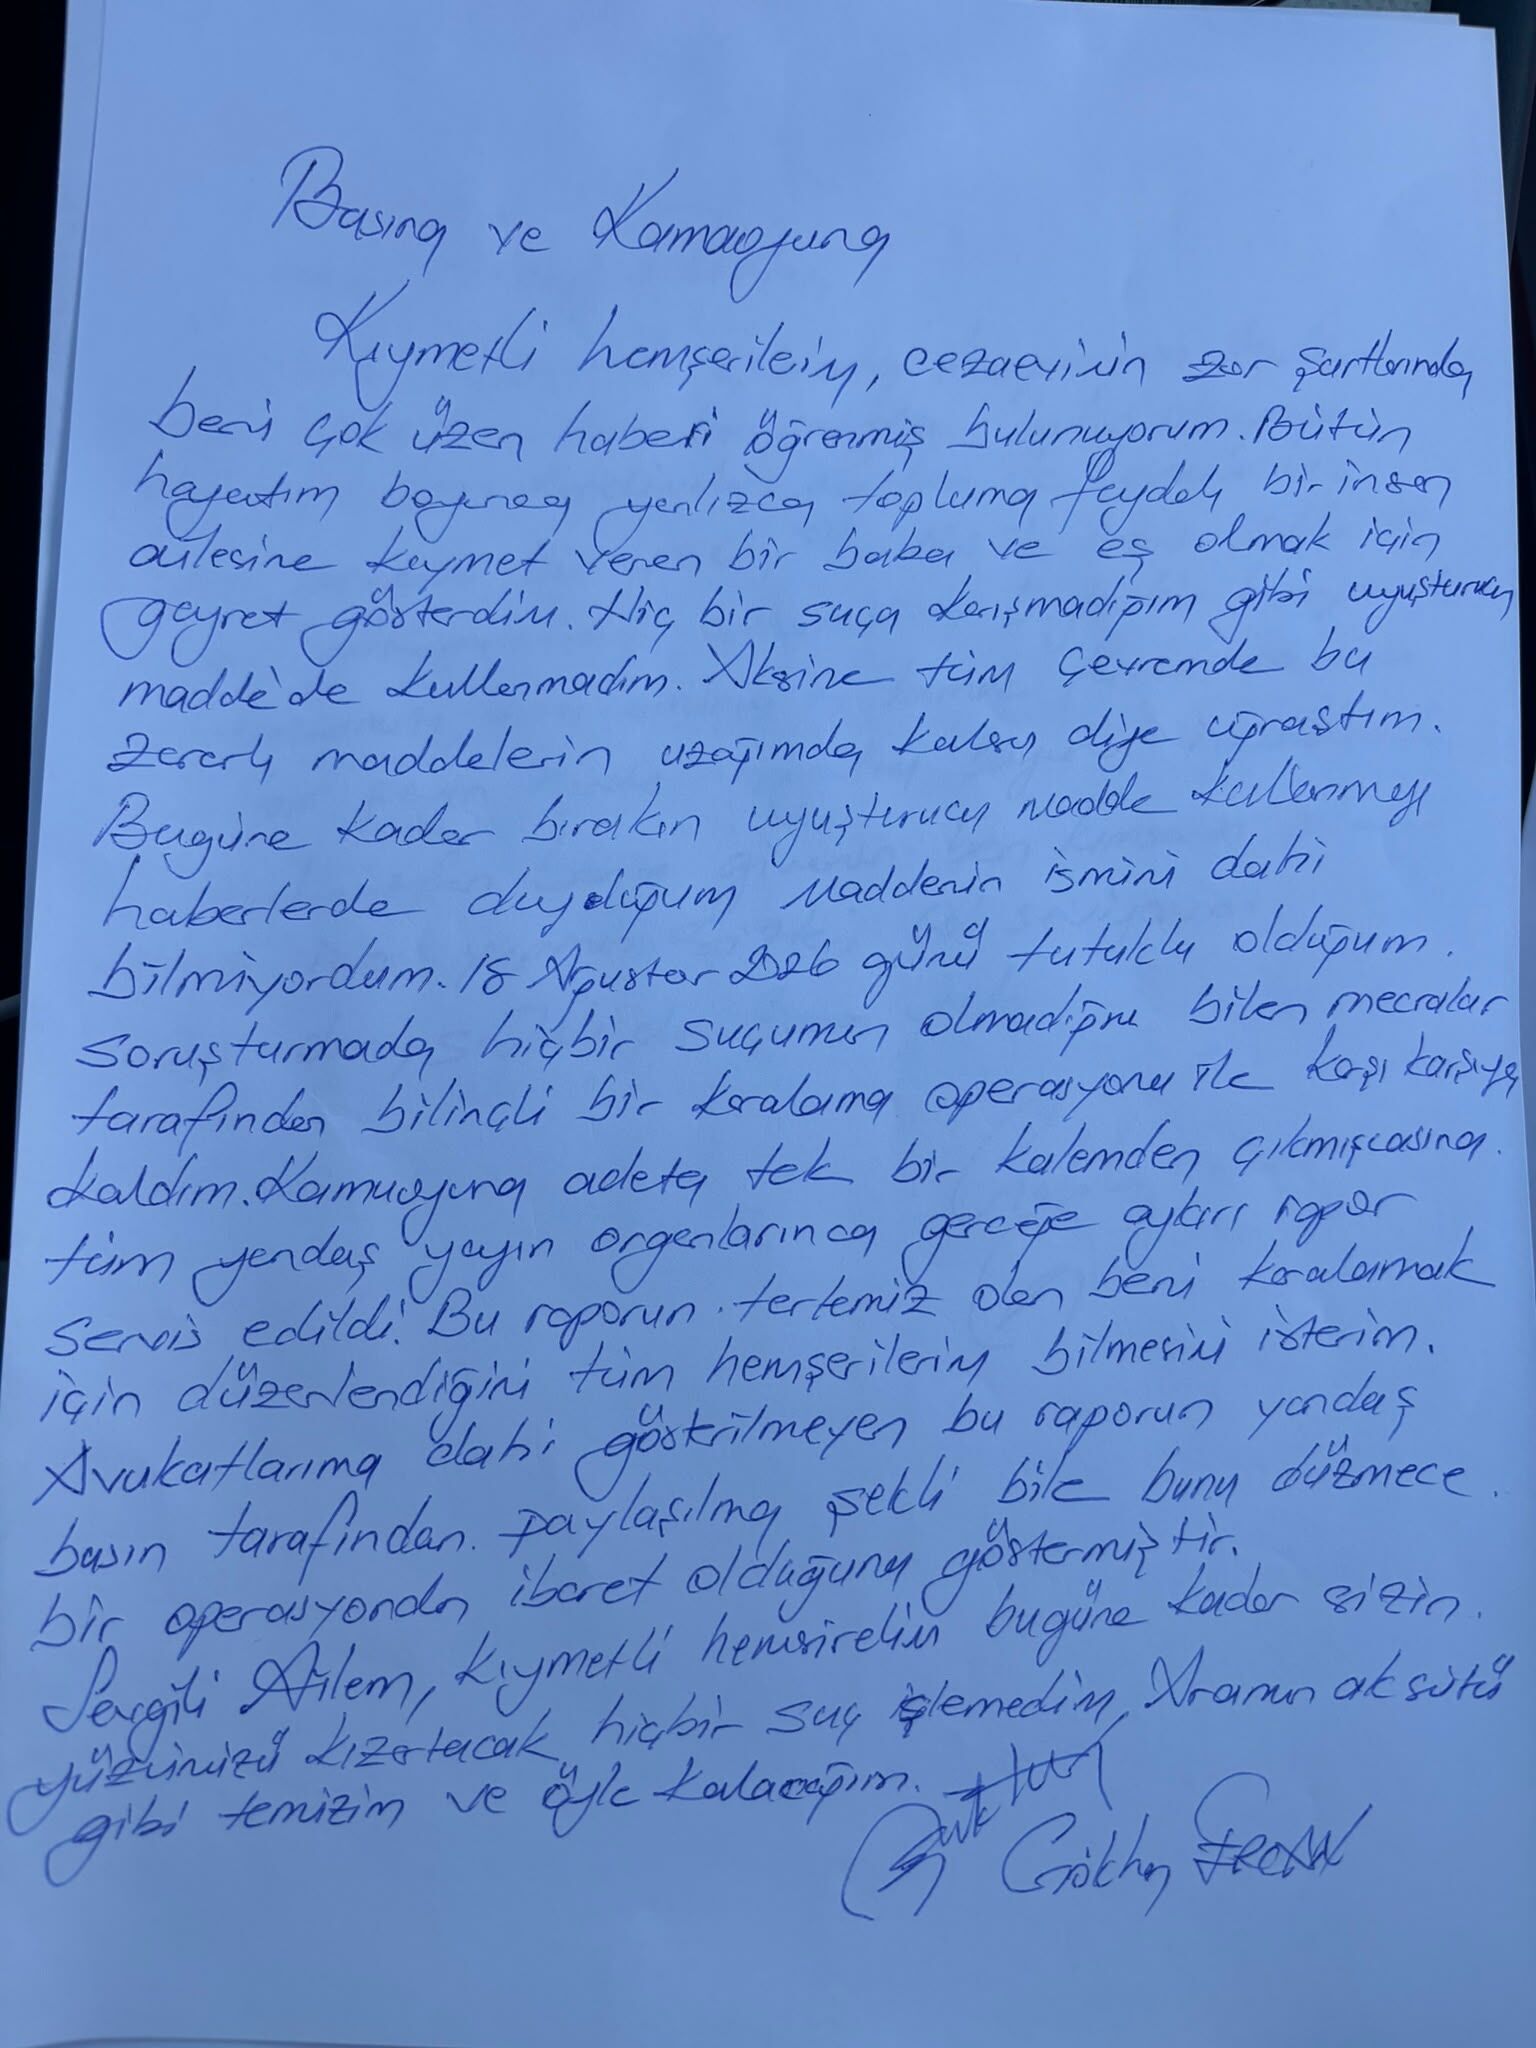 Basına ve Kamaoyuna
Kıymetli hemşerilerim, cezaevinin zor şartlarında
beni çok üzen haberi öğrenmiş bulunuyorum. Bütün
hayatım boyunca yanlızca topluma faydalı bir insan
ailesine kıymet veren bir baba ve eş olmak için
gayret gösterdim. Hiç bir suça karışmadığım gibi uyuşturucu
madde'de kullanmadım. Aksine tüm çevremde bu
zararlı maddelerin uzağımda kalsın diye uğraştım.
Bugüne kadar bırakın uyuşturucu madde kullanmayı
haberlerde duyduğum maddenin ismini dahi
bilmiyordum. 18 Ağustos 2026 günü tutuklu olduğum.
soruşturmada hiçbir suçumun olmadığını bilen mecralar
tarafından bilinçli bir karalama operasyonu ile karşı karşıya
kaldım. Kamuoyuna adeta tek bir kalemden çıkmışcasına.
tüm yandaş yayın organlarınca gerçeğe aykırı rapor
servis edildi. Bu raporun. tertemiz olan beni karalamak
için düzenlendiğini tüm hemşerilerim bilmesini isterim.
Avukatlarıma dahi gösterilmeyen bu raporun yandaş
basın tarafından. paylaşılma şekli bile bunu düzmece.
bir operasyondan ibaret olduğunu göstermiştir.
Sevgili Ailem, kıymetli hemşirelim bugüne kadar sizin.
yüzünüzü kızartacak hiçbir suç işlemedim, Anamın ak sütü
gibi temizim ve öyle kalacağım.
Gökhan